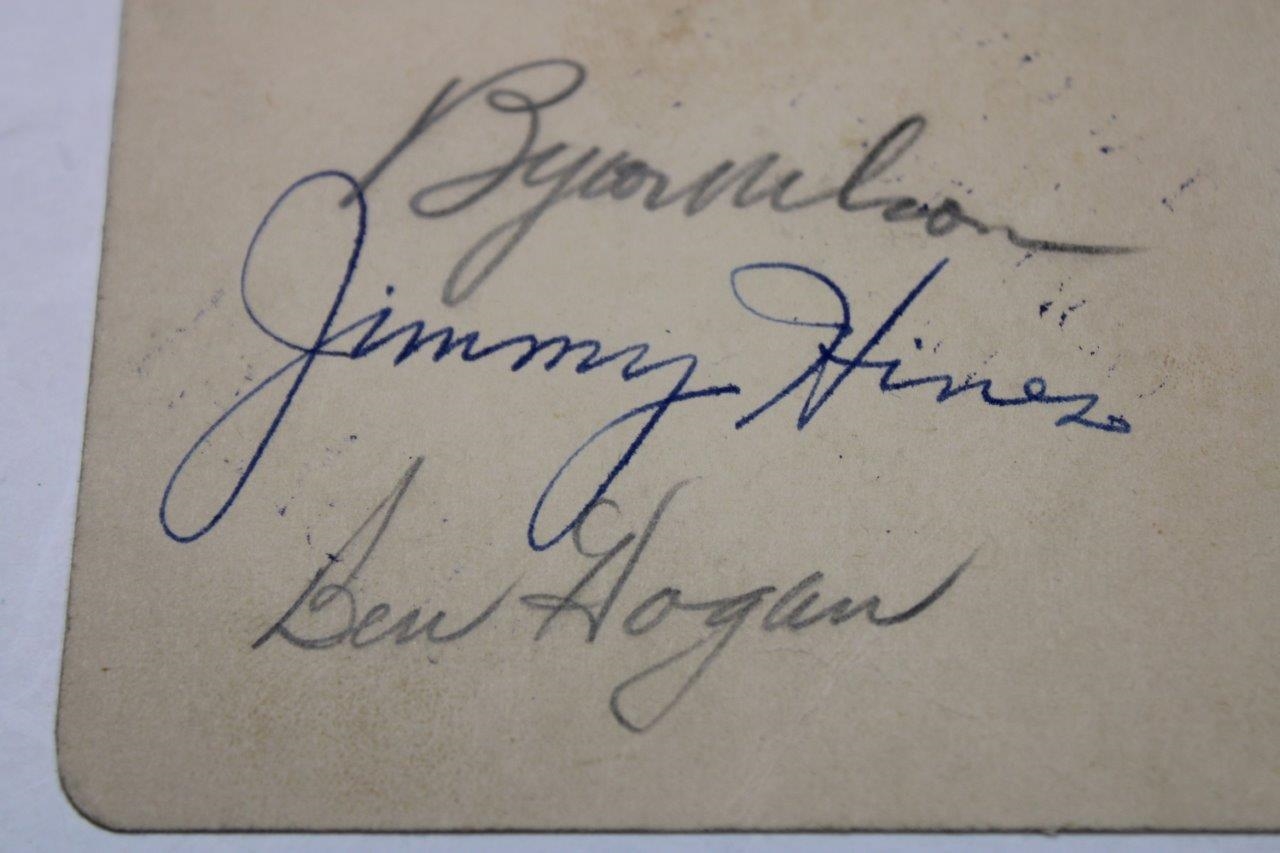 Byron Nelson
Jimmy Hines
Ben Hogan